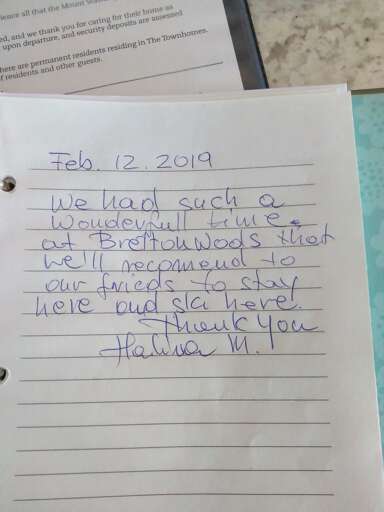 ience all that the Mount Wash
ed, and we thank you for caring for their home as
upon departure, and security deposits are assessed
here are permanent residents residing in The Townhomes.
f residents and other guests.
Feb. 12. 2019
We had such a
wonderfull time
at Brettonwods that
we'll recomend to
our frieds to stay
here and ski here.
Thank you
Halina M.